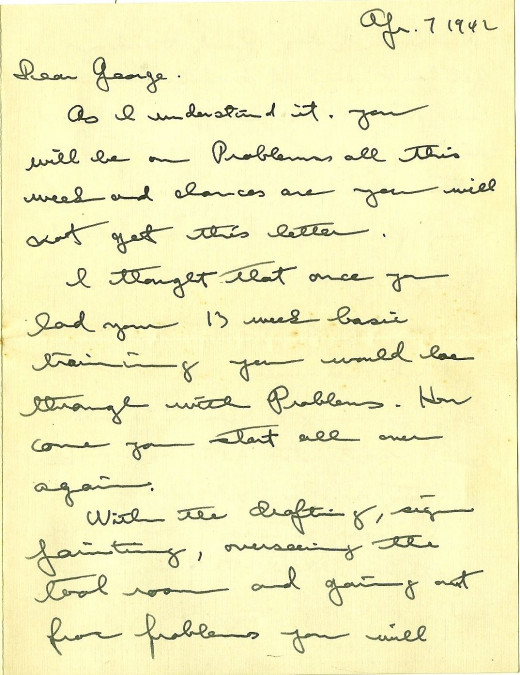 Apr. 7 1942
Dear George.
As I understand it. you
will be on Problems all this
week and chances are you will
not get this letter.
I thought that once you
had your 13 week basic
training you would be
through with Problems. How
come you start all over
again.
With the drafting, sign
painting, overseeing the
tool room and going out
for problems you will